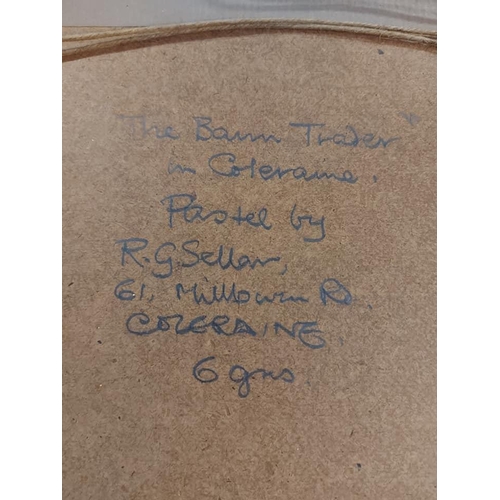 The Bann Trader"
in Coleraine.
Pastel by
R.G. Sellar,
61, Millburn Rd.
COLERAINE.
6 gns